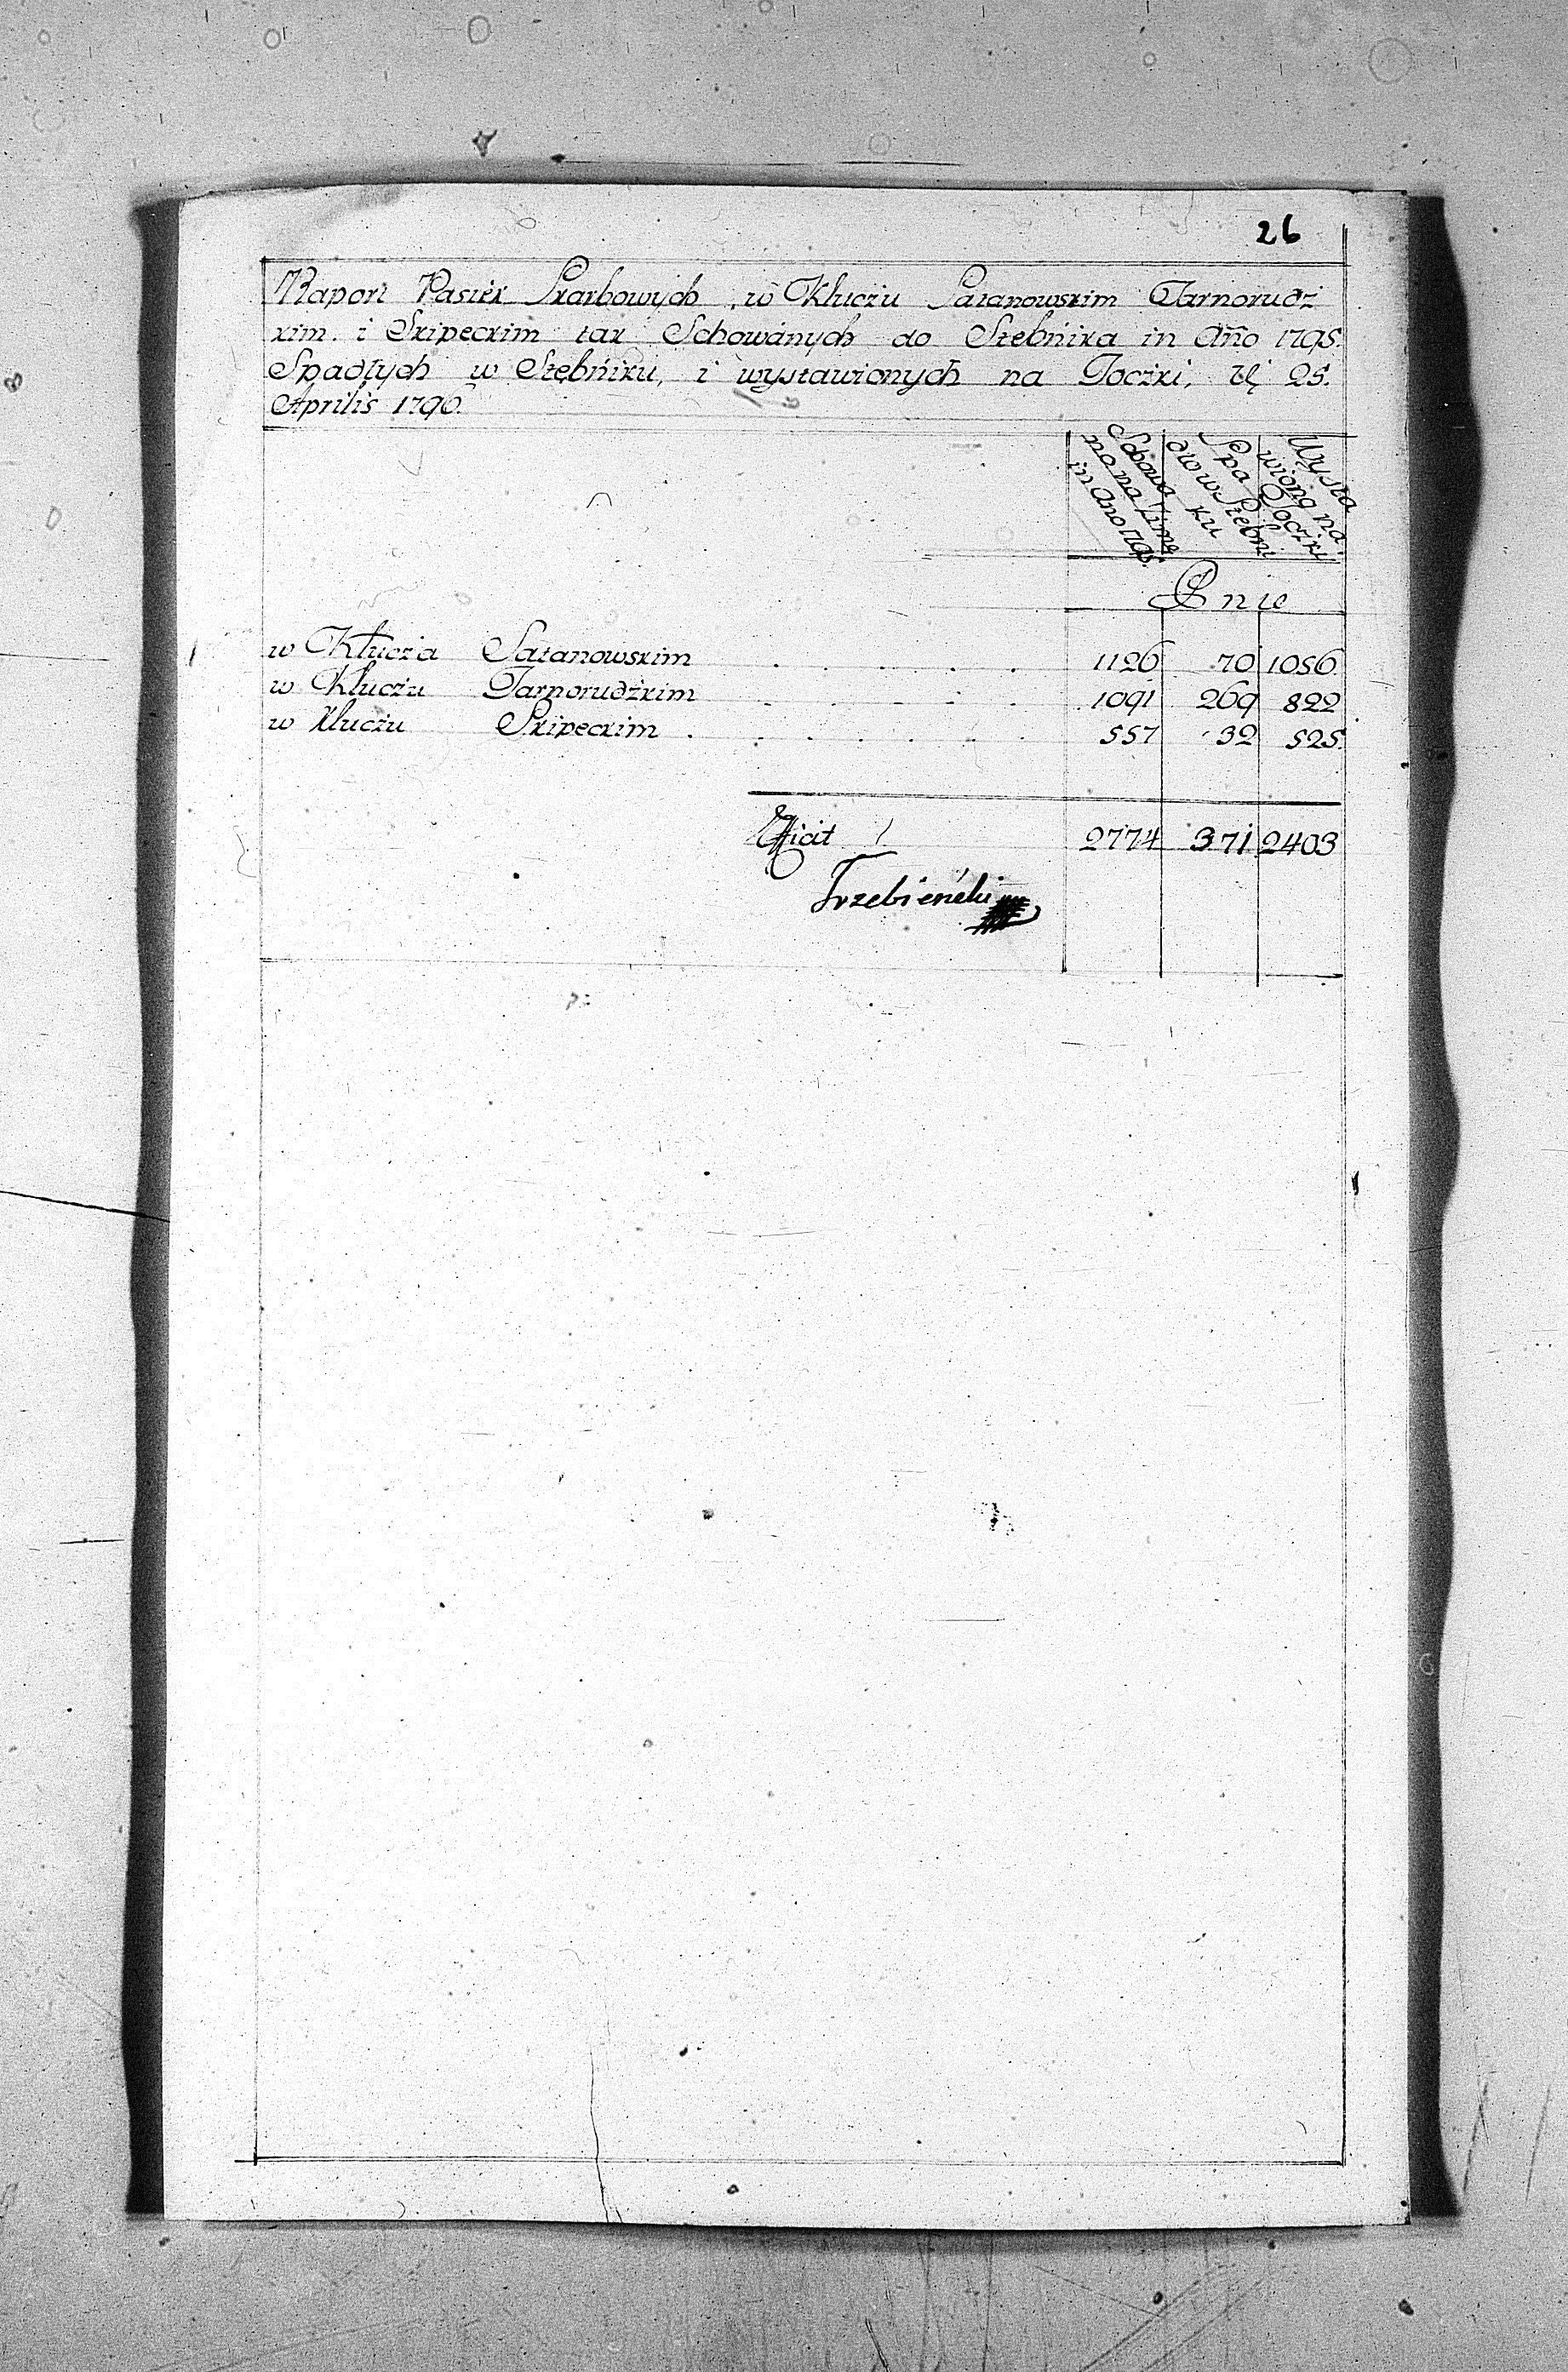 26
Raport Pasiek Skarbowych, w Kluczu Satanowskim Tarnorudz
kim. i Skipeckim tak Schowanych do Stebnika in Año 1795.
Spadłych w Stębniku, i wystawionych na Toczki, 25.
Aprilis 1796.
Schowa
no na Zimę
in Año 1795.
Spa
dło w Stebni
ku
Wysta
wiono na
Toczki
Pnie
w Klucza Satanowskim 1126 70 1056
w Kluczu Tarnorudzkim 1091 269 822
w Kluczu Skipeckim 557 32 525.
Efficit 2774 371 2403
Trzebieński